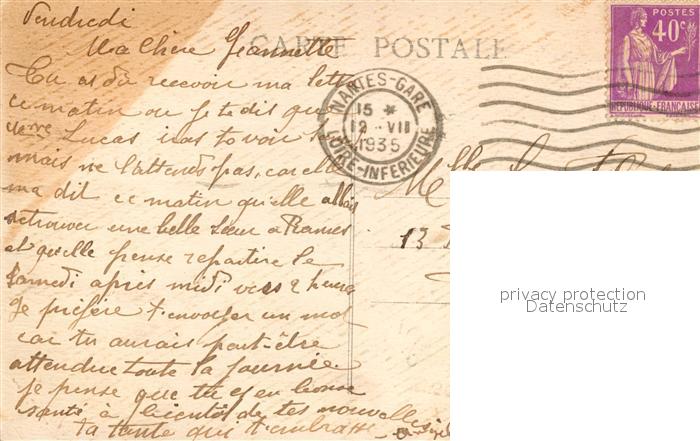 Vendredi
CARTE POSTALE
Ma Chère Jeannette
Tu as dû recevoir ma lettre
ce matin ou je te dis que
Mme Lucas iras te voir
mais ne l'attends pas, car elle
ma dit ce matin qu'elle allais
retrouver une belle sœur a Rennes
et qu'elle pense repartire le
Samedi après midi vers 2 heures
Je préfère t'envoyer un mot
car tu aurais peut-être
attendue toute la journée
je pense que tu es en bonne
santé à bientôt de tes nouvelles
ta tante qui t'embrasse
NANTES-GARE
15 *
12 -VII
1935
LOIRE-INFERIEURE
POSTES
40c
REPUBLIQUE-FRANCAISE
Melle
13
privacy protection
Datenschutz